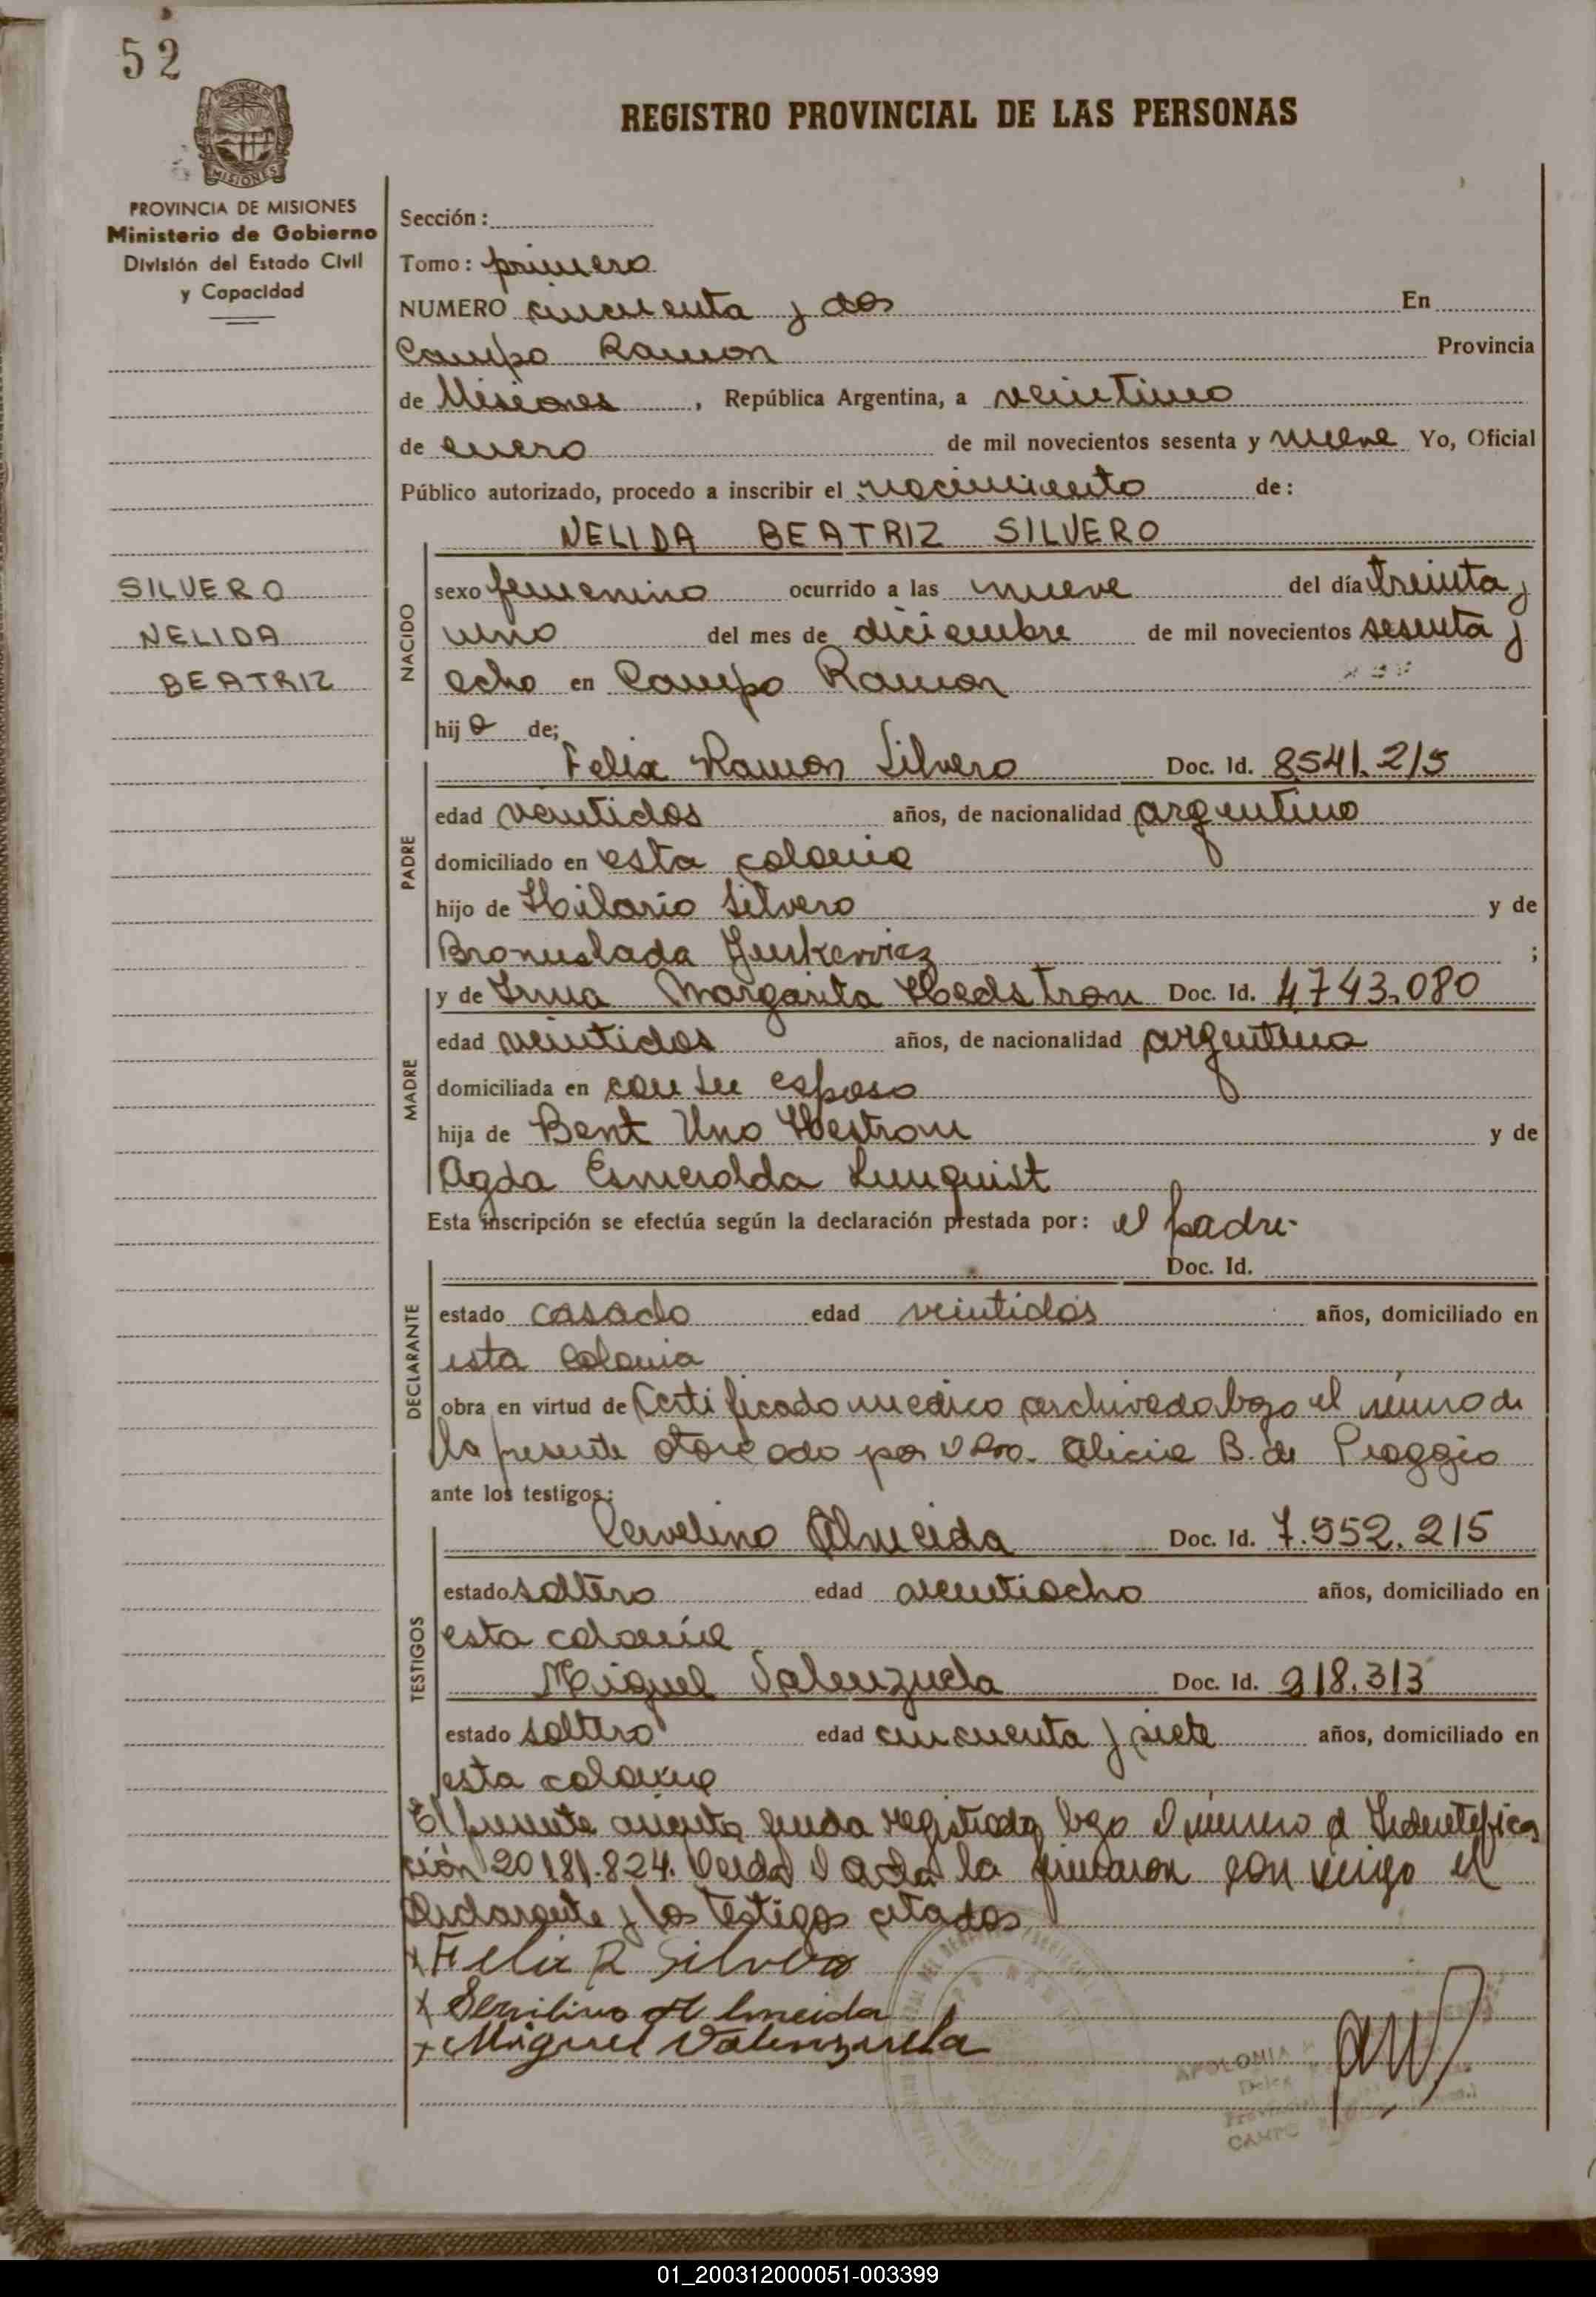 52
REGISTRO PROVINCIAL DE LAS PERSONAS
MISIONES
PROVINCIA DE MISIONES
Ministerio de Gobierno
División del Estado Civil
y Capacidad
Sección:
Tomo: primero
NUMERO cincuenta y dos En
Campo Ramon Provincia
de Misiones, República Argentina, a veintiuno
de enero de mil novecientos sesenta y nueve Yo, Oficial
Público autorizado, procedo a inscribir el nacimiento de:
NELIDA BEATRIZ SILVERO
SILVERO
NELIDA
BEATRIZ
NACIDO
sexo femenino ocurrido a las nueve del día treinta y
uno del mes de diciembre de mil novecientos sesenta y
ocho en Campo Ramon
hija de;
PADRE
Felix Ramon Silvero Doc. Id. 8541.215
edad veintidos años, de nacionalidad argentino
domiciliado en esta colonia
hijo de Hilario Silvero y de
Bronuslada Juskevicz ;
MADRE
y de Irma Margarita Hedstrom Doc. Id. 4743.080
edad veintidos años, de nacionalidad argentina
domiciliada en con su esposo
hija de Bent Uno Hestrom y de
Agda Esmeralda Lunquist
Esta inscripción se efectúa según la declaración prestada por: el padre-
DECLARANTE
Doc. Id.
estado casado edad veintidós años, domiciliado en
esta colonia
obra en virtud de Certificado medico archivado bajo el número de
la presente por Alicia B. de Piaggio
ante los testigos:
TESTIGOS
Almeida Doc. Id. 7.552.215
estado soltero edad veintiocho años, domiciliado en
esta colonia
Miguel Valenzuela Doc. Id. 218.313
estado soltero edad cincuenta y siete años, domiciliado en
esta colonia
El presente registrada bajo el número d
ción 20181.824. acta la firmaron con migo el
declarante y los testigos citados
x Felix R Silvero
x Almeida
x Miguel Valenzuela
APOLONIA
CAMPO
01_200312000051-003399